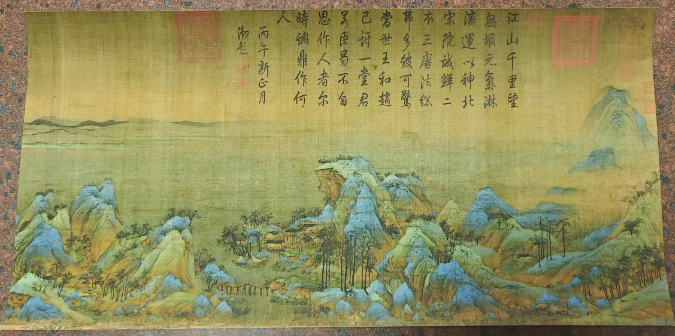 江山千里望
無垠元氣淋
漓運以神北
宋院誠鮮二
本三唐法總
弗多皴可驚
當世王和趙
已訝一堂君
若臣曷不自
思作人者爾
時調鼎作何
人
丙午新正月
御題